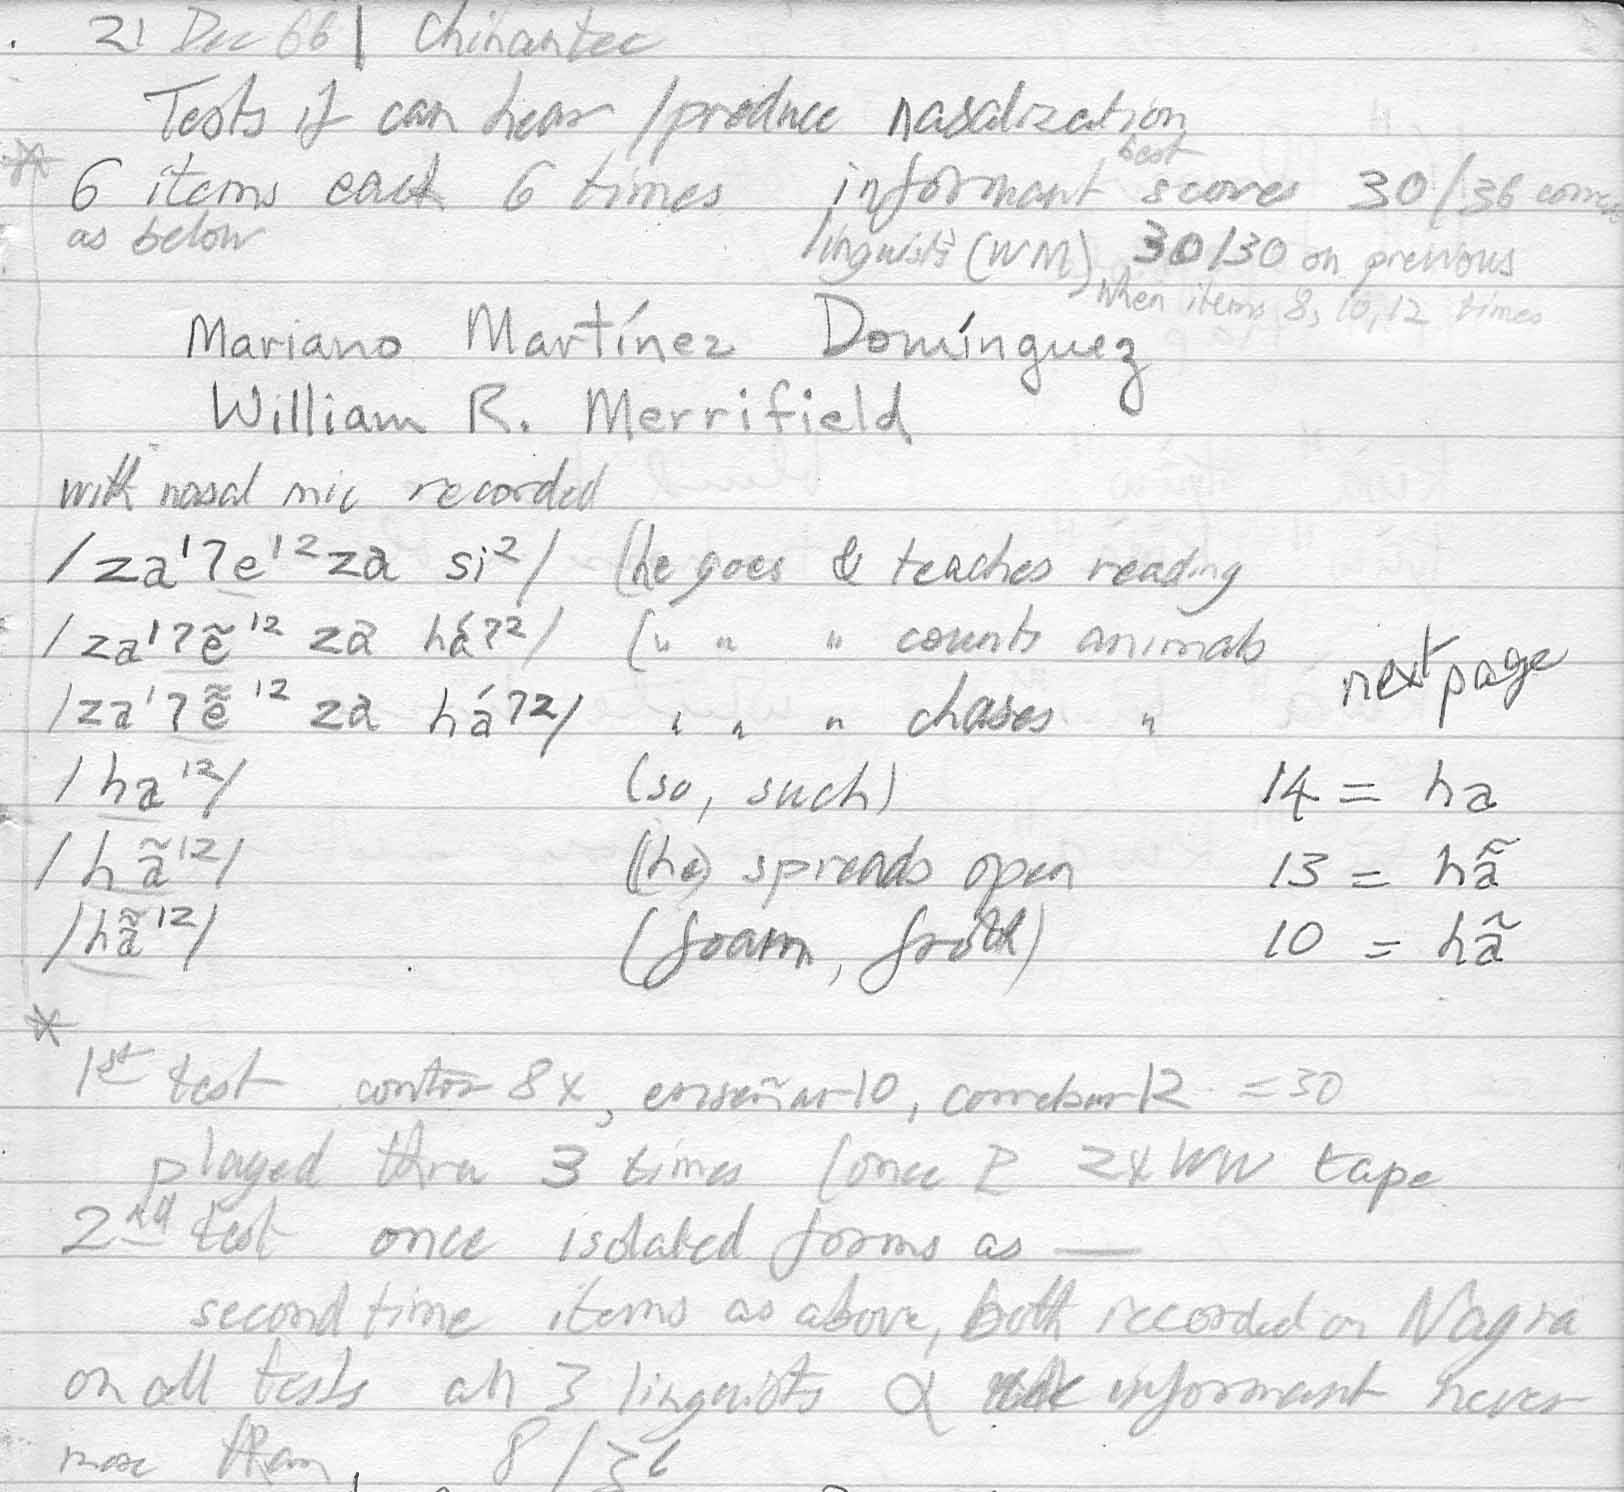 21 Dec 66 | Chinantec
Tests if can hear / produce nasalization
* 6 items each 6 times informant best scores 30/36
as below linguists (WM) 30/30 on previous
when items 8, 10, 12 times
Mariano Martínez Domínguez
William R. Merrifield
with nasal mic recorded
/za¹ʔe¹² za si²/ (he goes & teaches reading
/za¹ʔẽ¹² za háʔ²/ (" " " counts animals
/za¹ʔẽ̃¹² za háʔ²/ " " " chases " next page
/ha¹²/ (so, such) 14 = ha
/hã¹²/ ((he) spreads open 13 = hã̃
/hã̃¹²/ (foam, froth) 10 = hã
*
1st test contar 8x, enseñar 10, corretear 12 = 30
played thru 3 times (once 2x WW tape
2nd test once isolated forms as —
second time items as above, both recorded on Nagra
on all tests all 3 linguists & informant never
more than 8/36